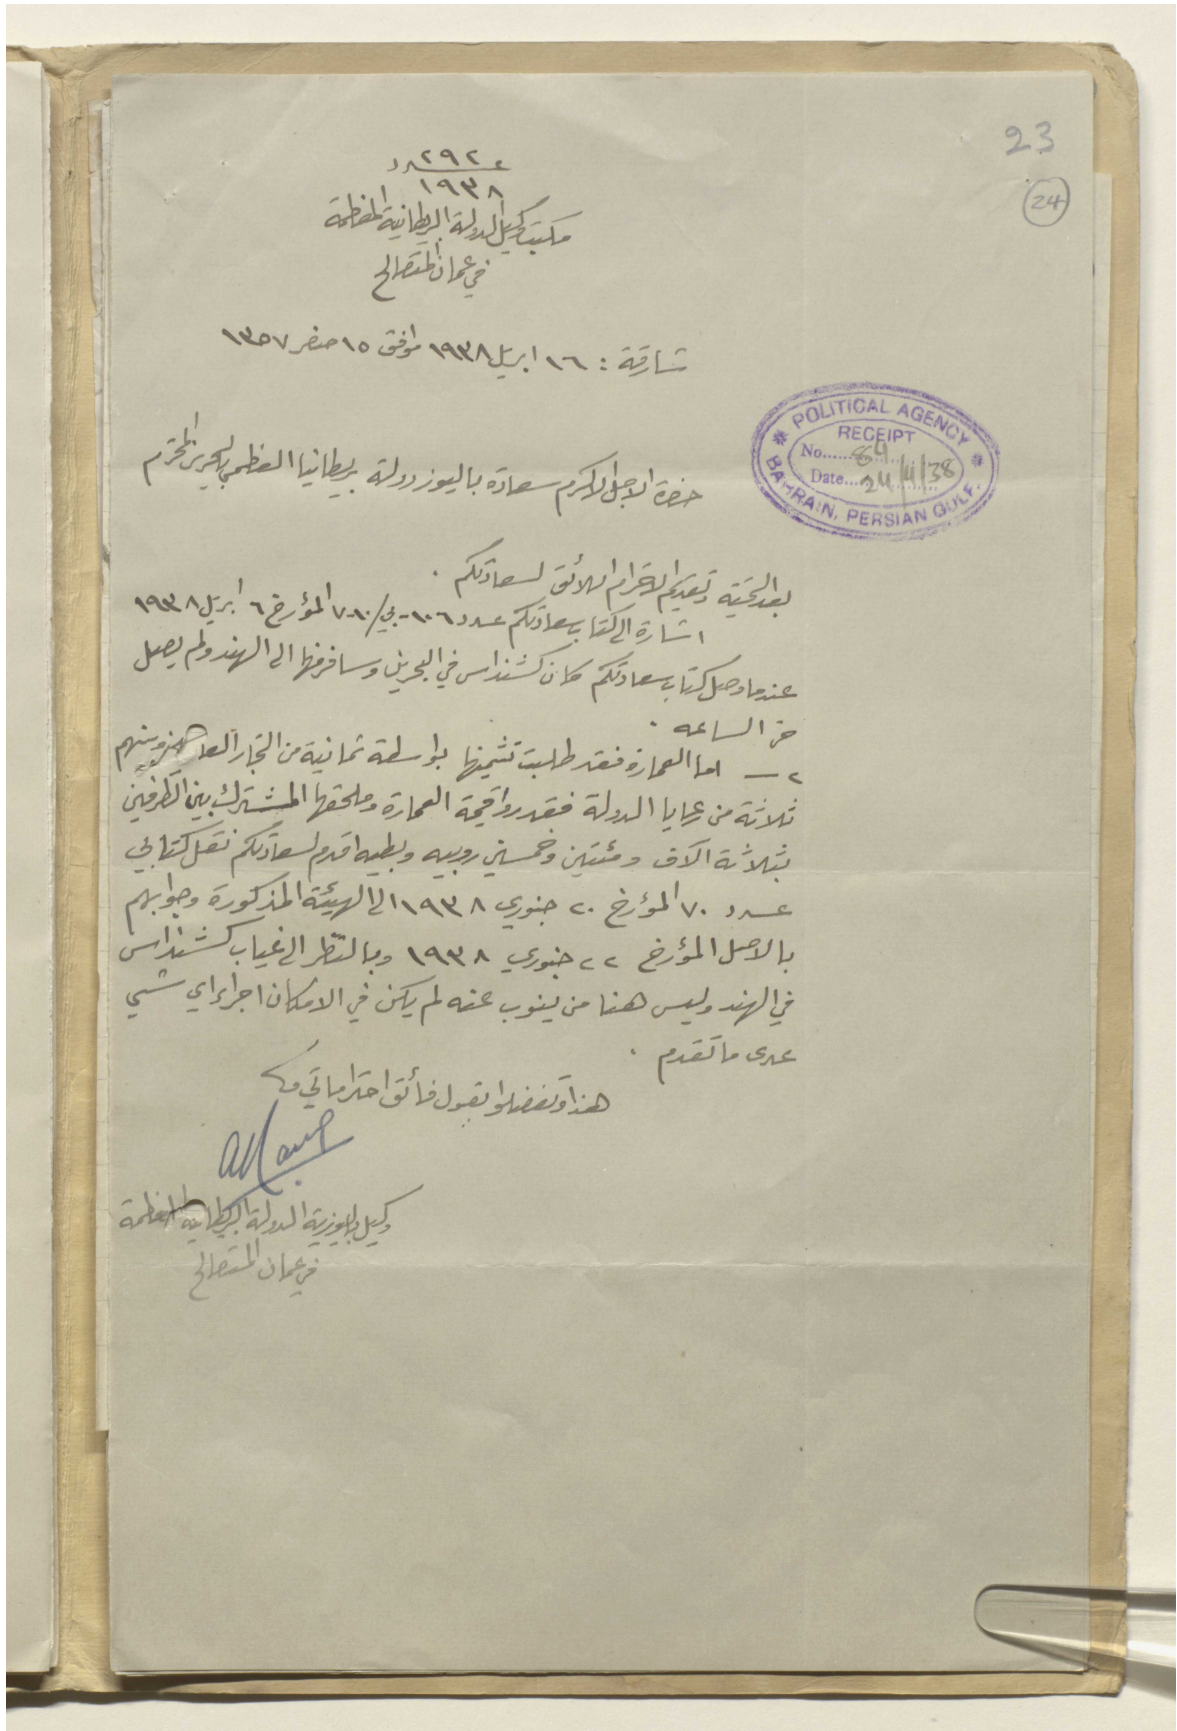 23
24
عدد ٢٩٢
١٩٣٨
مكتب وكيل الدولة البريطانية المعظمة
في عمان المتصالح
شارقة : ١٦ ابريل ١٩٣٨ موافق ١٥ صفر ١٣٥٧
POLITICAL AGENCY
RECEIPT
No. 864
Date 24/4/38
BAHRAIN, PERSIAN GULF.
حضرة الاجل الاكرم سعادة باليوز دولة بريطانيا العظمى بالبحرين المحترم
بعد التحية وتقديم الاحترام اللائق لسعادتكم ٠
اشارة الى كتاب سعادتكم عدد ١٠٦-بي/١٠-٧ المؤرخ ٦ ابريل ١٩٣٨
عندما وصل كتاب سعادتكم كان كشنداس في البحرين وسافر منها الى الهند ولم يصل
حتى الساعه ٠
٢ — اما العمارة فقد طلبت تثمينها بواسطة ثمانية من التجار العارفين ومنهم
ثلاثة من رعايا الدولة فقدروا قيمة العمارة وملحقها المشترك بين الطرفين
بثلاثة الاف ومئتين وخمسين روبيه وبطيه اقدم لسعادتكم نقل كتابي
عدد ٧٠ المؤرخ ٢٠ جنوري ١٩٣٨ الى الهيئة المذكورة وجوابهم
بالاصل المؤرخ ٢٢ جنوري ١٩٣٨ وبالنظر الى غياب كشنداس
في الهند وليس هنا من ينوب عنه لم يكن في الامكان اجراء اي شي
عدى ما تقدم ٠
هذا وتفضلوا بقبول فائق احتراماتي
وكيل باليوزية الدولة البريطانية المعظمة
في عمان المتصالح